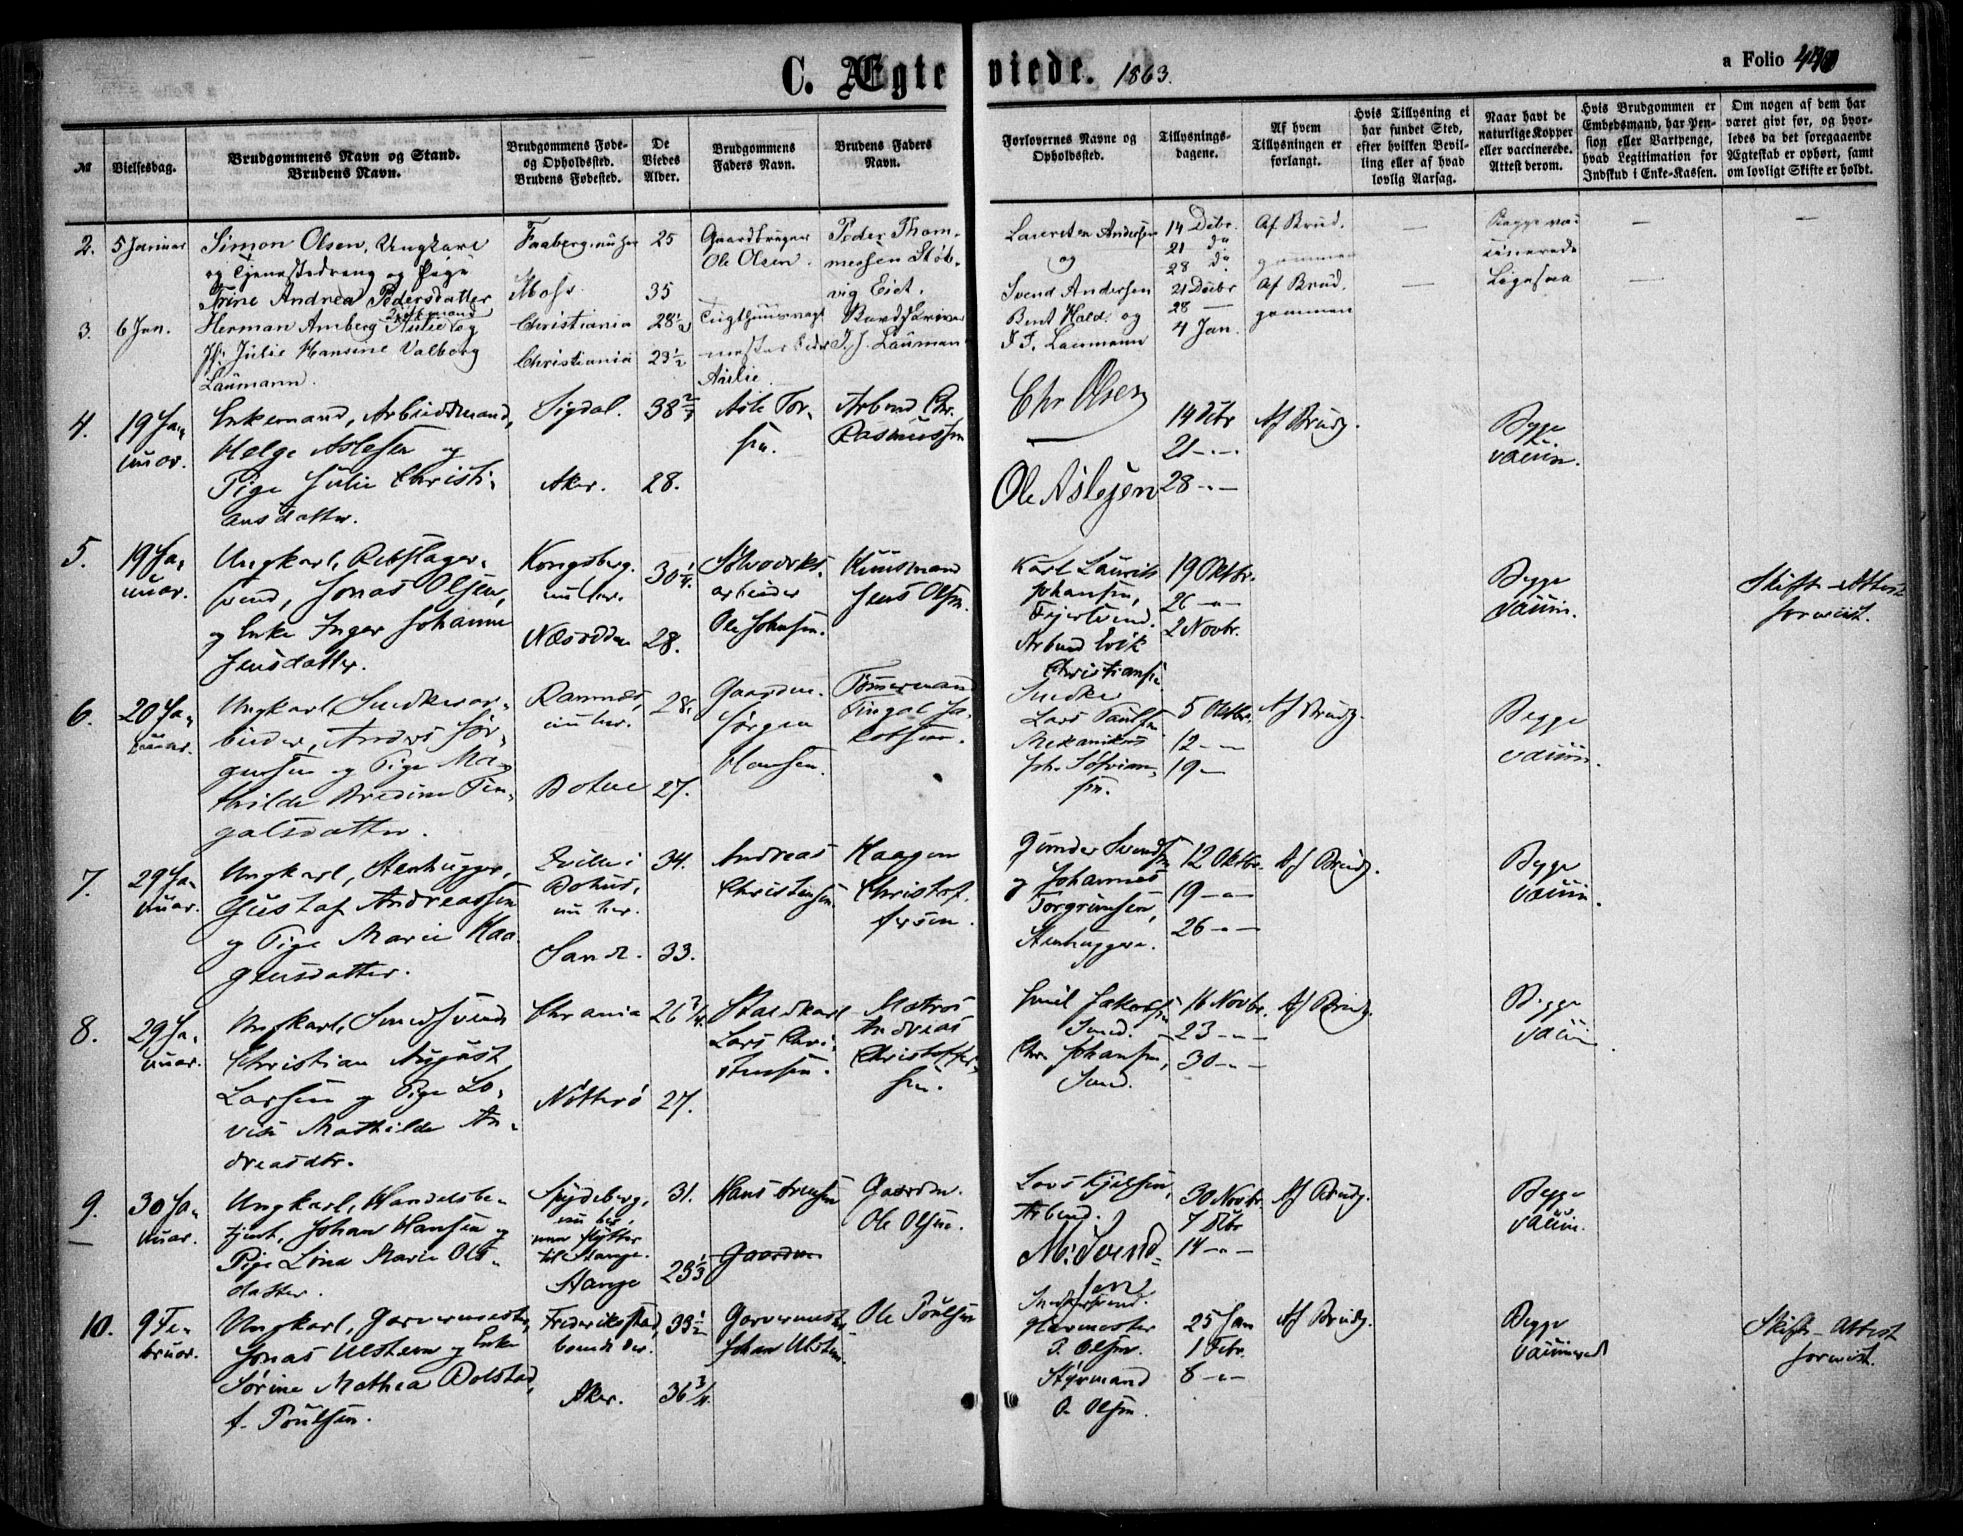 C. Ægteviede. 1863.
a Folio 440
№
Vielsesdag.
Brudgommens Navn og Stand.
Brudens Navn.
Brudgommens Føde- og Opholdssted.
Brudens Fødested.
De Viedes Alder.
Brudgommens Faders Navn.
Brudens Faders Navn.
Forlovernes Navne og Opholdssted.
Tillysnings-dagene.
Af hvem Tillysningen er forlangt.
Hvis Tillysning ei har fundet Sted, efter hvilken Bevilling eller af hvad lovlig Aarsag.
Naar havt de naturlige Kopper eller vaccinerede. Attest derom.
Hvis Brudgommen er Embedsmand, har Pension eller Vartpenge, hvad Legitimation for Indskud i Enke-Kassen.
Om nogen af dem har været givt før, og hvorledes da det foregaaende Ægteskab er ophørt, samt om lovligt Skifte er holdt.
2. 5 Januar
Simon Olsen, Ungkarl
og Tjenestedreng og Pige
Trine Andrea Pedersdatter
Faaberg
Moss
25
35
Gaardbruger
Ole Olsen.
Peder Thom-
messen
vig Eiet.
Andersen
og
Svend Andersen
14 Debr.
21 do
28 do
Af Brud-
gommen
Begge vac-
cinerede
3. 6 Jan.
Herman Amberg Aulie og
Jfr. Julie Hansine Valborg
Laumann.
Christiania
Christiania
28 1/2
23 1/2
Aulie.
J. Laumann
Bent Hald og
J. J. Laumann
21 Debr
28 —
4 Jan.
Af Brud-
gommen
Ligesaa
4. 19 Ja-
nuar.
Enkemand, Arbeidsmand,
Helge Aslesen og
Pige Julie Christi-
ansdatter.
Sigdal.
Aker.
38 2/3
28.
Asle Tor-
sen.
Arbmd Chr.
Rasmussen
Chr Olsen
Ole Aslesen
14 Debr
21 - - -
28 - -
Af Brudg.
Begge
vaccin.
5. 19 Ja-
nuar.
Ungkarl, Rebslager-
svend, Jonas Olsen,
og Enke Inger Johanne
Jensdatter.
Kongsberg.
nu her.
Næsodden
30 1/4.
28.
Sølvværks-
arbeider
Ole Johnsen.
Huusmand
Jens Olsen.
Karl Laurits
Johansen,
Arbmd Erik
Christiansen
19 Oktbr.
26 - -
2 Novbr.
Begge
vaccin.
Skifte-Attest
forevist.
6. 20 Ja-
nuar.
Ungkarl, Snedkerar-
beider, Anders Jør-
gensen og Pige Ma-
thilde Bredine Fin-
galsdatter.
Ramnæs,
nu her.
Botne
28.
27.
Gaardm.
Jørgen
Hansen.
Tømermand
Fingal Ja-
kobsen.
Snedker
Lars Paulsen
Mekanikus
5 Oktbr.
12 - -
19 -
Af Brudg.
Begge
vaccin.
7. 29 Ja-
nuar.
Ungkarl, Stenhugger,
Gustaf Andreassen
og Pige Marie Haa-
gensdatter.
Bohus,
nu her.
Sande.
34.
33.
Andreas
Christensen.
Haagen
Christof-
fersen.
Gunder Svendsen
og Johannes
Torgrimsen,
Stenhuggere.
12 Oktbr.
19 - -
26 - -
Af Brudg.
Begge
vaccin.
8. 29 Ja-
nuar.
Ungkarl, Smedsvend
Christian August
Larsen og Pige Lo-
vise Mathilde An-
dreasdtr.
Chrania
Nøtterø
26 3/4
27.
Staldkarl
Lars Chri-
stensen.
Matros
Andreas
Christoffer-
sen.
Emil Jakobsen
Smed.
Chr. Johansen,
Smed.
16 Novbr.
23 - -
30 - -
Af Brudg.
Begge
vaccin.
9. 30 Ja-
nuar.
Ungkarl, Handelsbe-
tjent, Johan Hansen og
Pige Lina Marie Ols-
datter.
Spydeberg,
nu her,
men flytter
til Stange.
Stange
31.
23 1/3
Hans Iversen
Gaardm
Gaardm.
Ole Olsen.
Lars Kjelsen,
Arbmd.
M. Svend-
sen
Snedkersvend.
30 Novbr.
7 Debr
14 - -
Af Brudg.
Begge
vaccin.
10. 9 Fe-
bruar.
Ungkarl, Garvermester,
Jonas Ulsteen og Enke
Sørine Mathea Bolstad,
f. Poulsen.
Frederikstad,
boende der.
Aker.
33 1/2
36 3/4.
Garvermester
Johan Ulsteen.
Ole Poulsen
O. Olsen.
Styrmand
O. Olsen.
25 Jan
1 Febr.
8 - -
Af Brudg.
Begge
vaccinered
Skifte-Attest
forevist.